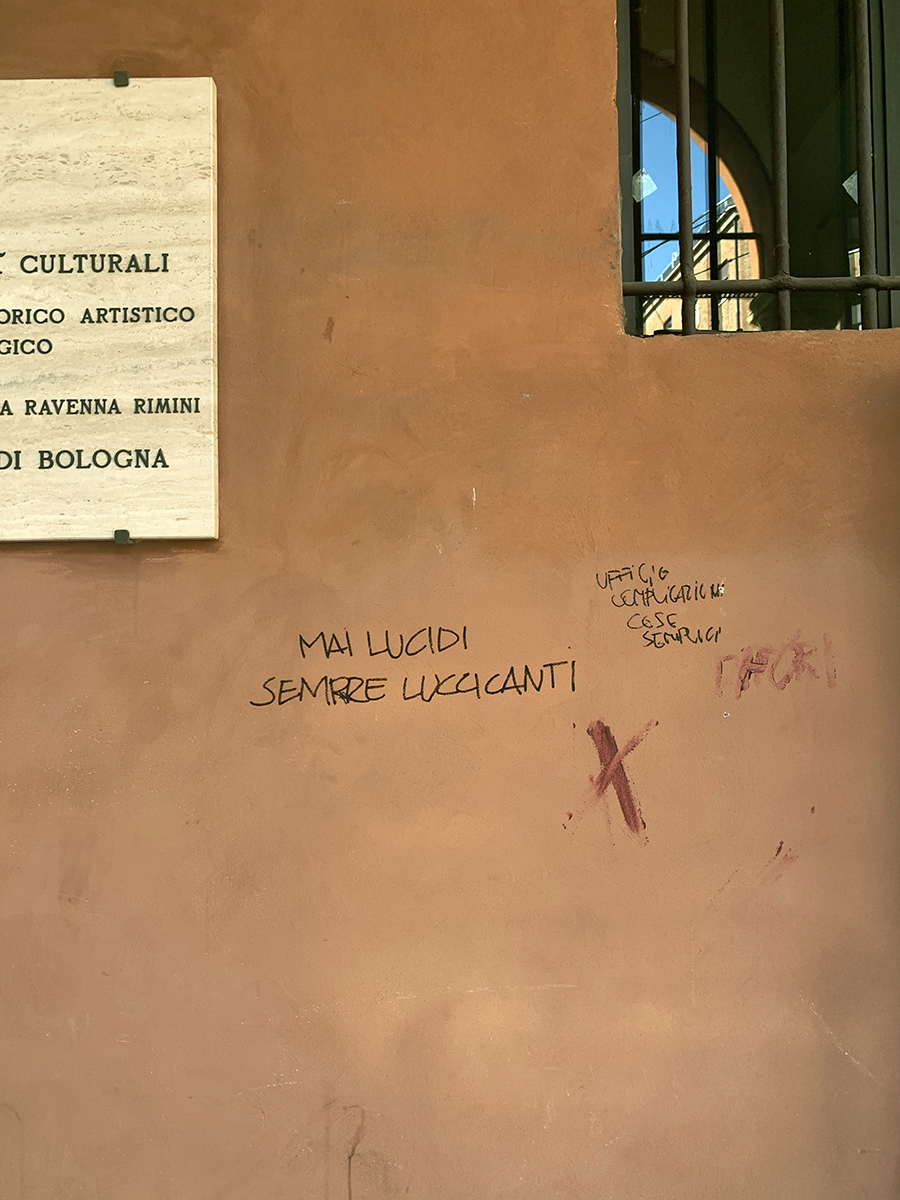 CULTURALI
ORICO ARTISTICO
GICO
A RAVENNA RIMINI
DI BOLOGNA
UFFICIO
COMPLICAZIONI
COSE
SEMPLICI
MAI LUCIDI
SEMPRE LUCCICANTI